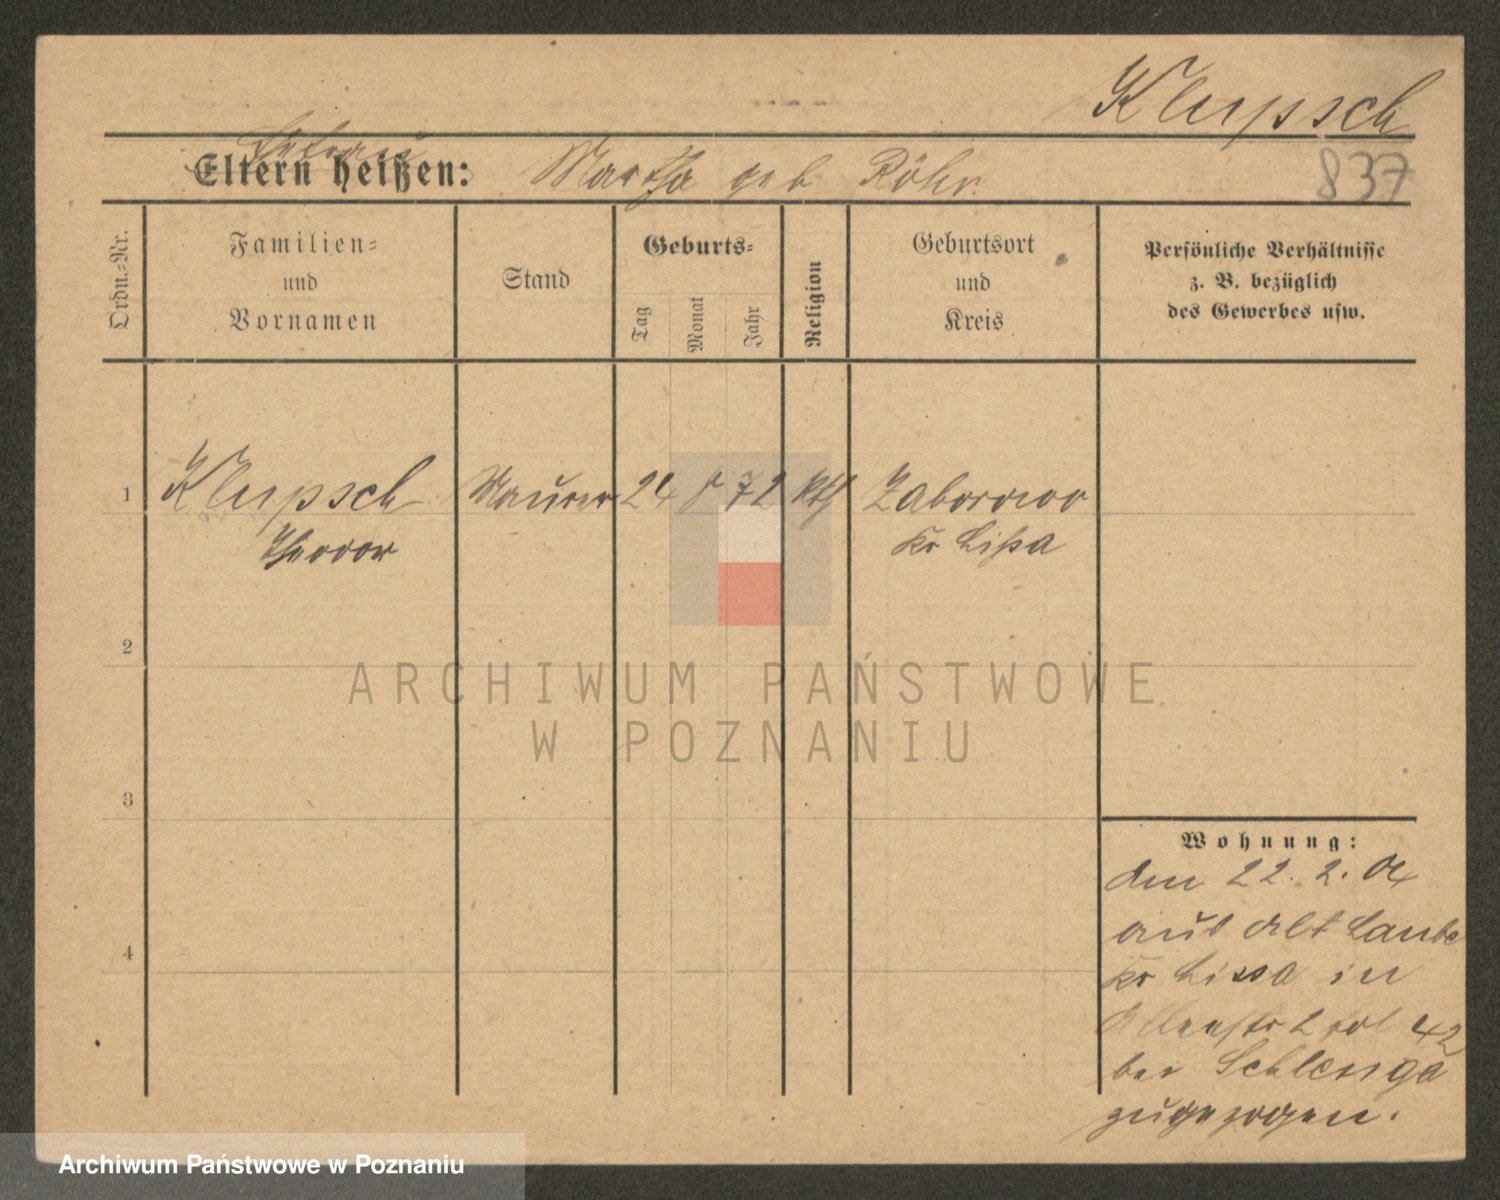 Klupsch
Eltern heißen: Martha geb Röhr.
837
Ordn.-Nr.
Familien-
und
Vornamen
Stand
Geburts-
Tag
Monat
Jahr
Religion
Geburtsort
und
Kreis
Persönliche Verhältnisse
z. B. bezüglich
des Gewerbes usw.
1 Klupsch Maurer 24 8 72 kth Zaborowo
Theodor Kr Lißa
2
ARCHIWUM PAŃSTWOWE
W POZNANIU
3
4
Wohnung:
den 22. 2. 04
aus Alt Laube
Kr Lissa in
42
bei Schlenga
zugezogen.
Archiwum Państwowe w Poznaniu